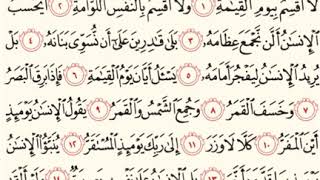 لَآ أُقْسِمُ بِيَوْمِ ٱلْقِيَٰمَةِ ١ وَلَآ أُقْسِمُ بِٱلنَّفْسِ ٱللَّوَّامَةِ ٢ أَيَحْسَبُ
ٱلْإِنسَٰنُ أَلَّن نَّجْمَعَ عِظَامَهُۥ ٣ بَلَىٰ قَٰدِرِينَ عَلَىٰٓ أَن نُّسَوِّىَ بَنَانَهُۥ ٤ بَلْ
يُرِيدُ ٱلْإِنسَٰنُ لِيَفْجُرَ أَمَامَهُۥ ٥ يَسْـَٔلُ أَيَّانَ يَوْمُ ٱلْقِيَٰمَةِ ٦ فَإِذَا بَرِقَ ٱلْبَصَرُ
٧ وَخَسَفَ ٱلْقَمَرُ ٨ وَجُمِعَ ٱلشَّمْسُ وَٱلْقَمَرُ ٩ يَقُولُ ٱلْإِنسَٰنُ يَوْمَئِذٍ
أَيْنَ ٱلْمَفَرُّ ١٠ كَلَّا لَا وَزَرَ ١١ إِلَىٰ رَبِّكَ يَوْمَئِذٍ ٱلْمُسْتَقَرُّ ١٢ يُنَبَّؤُا۟ ٱلْإِنسَٰنُ